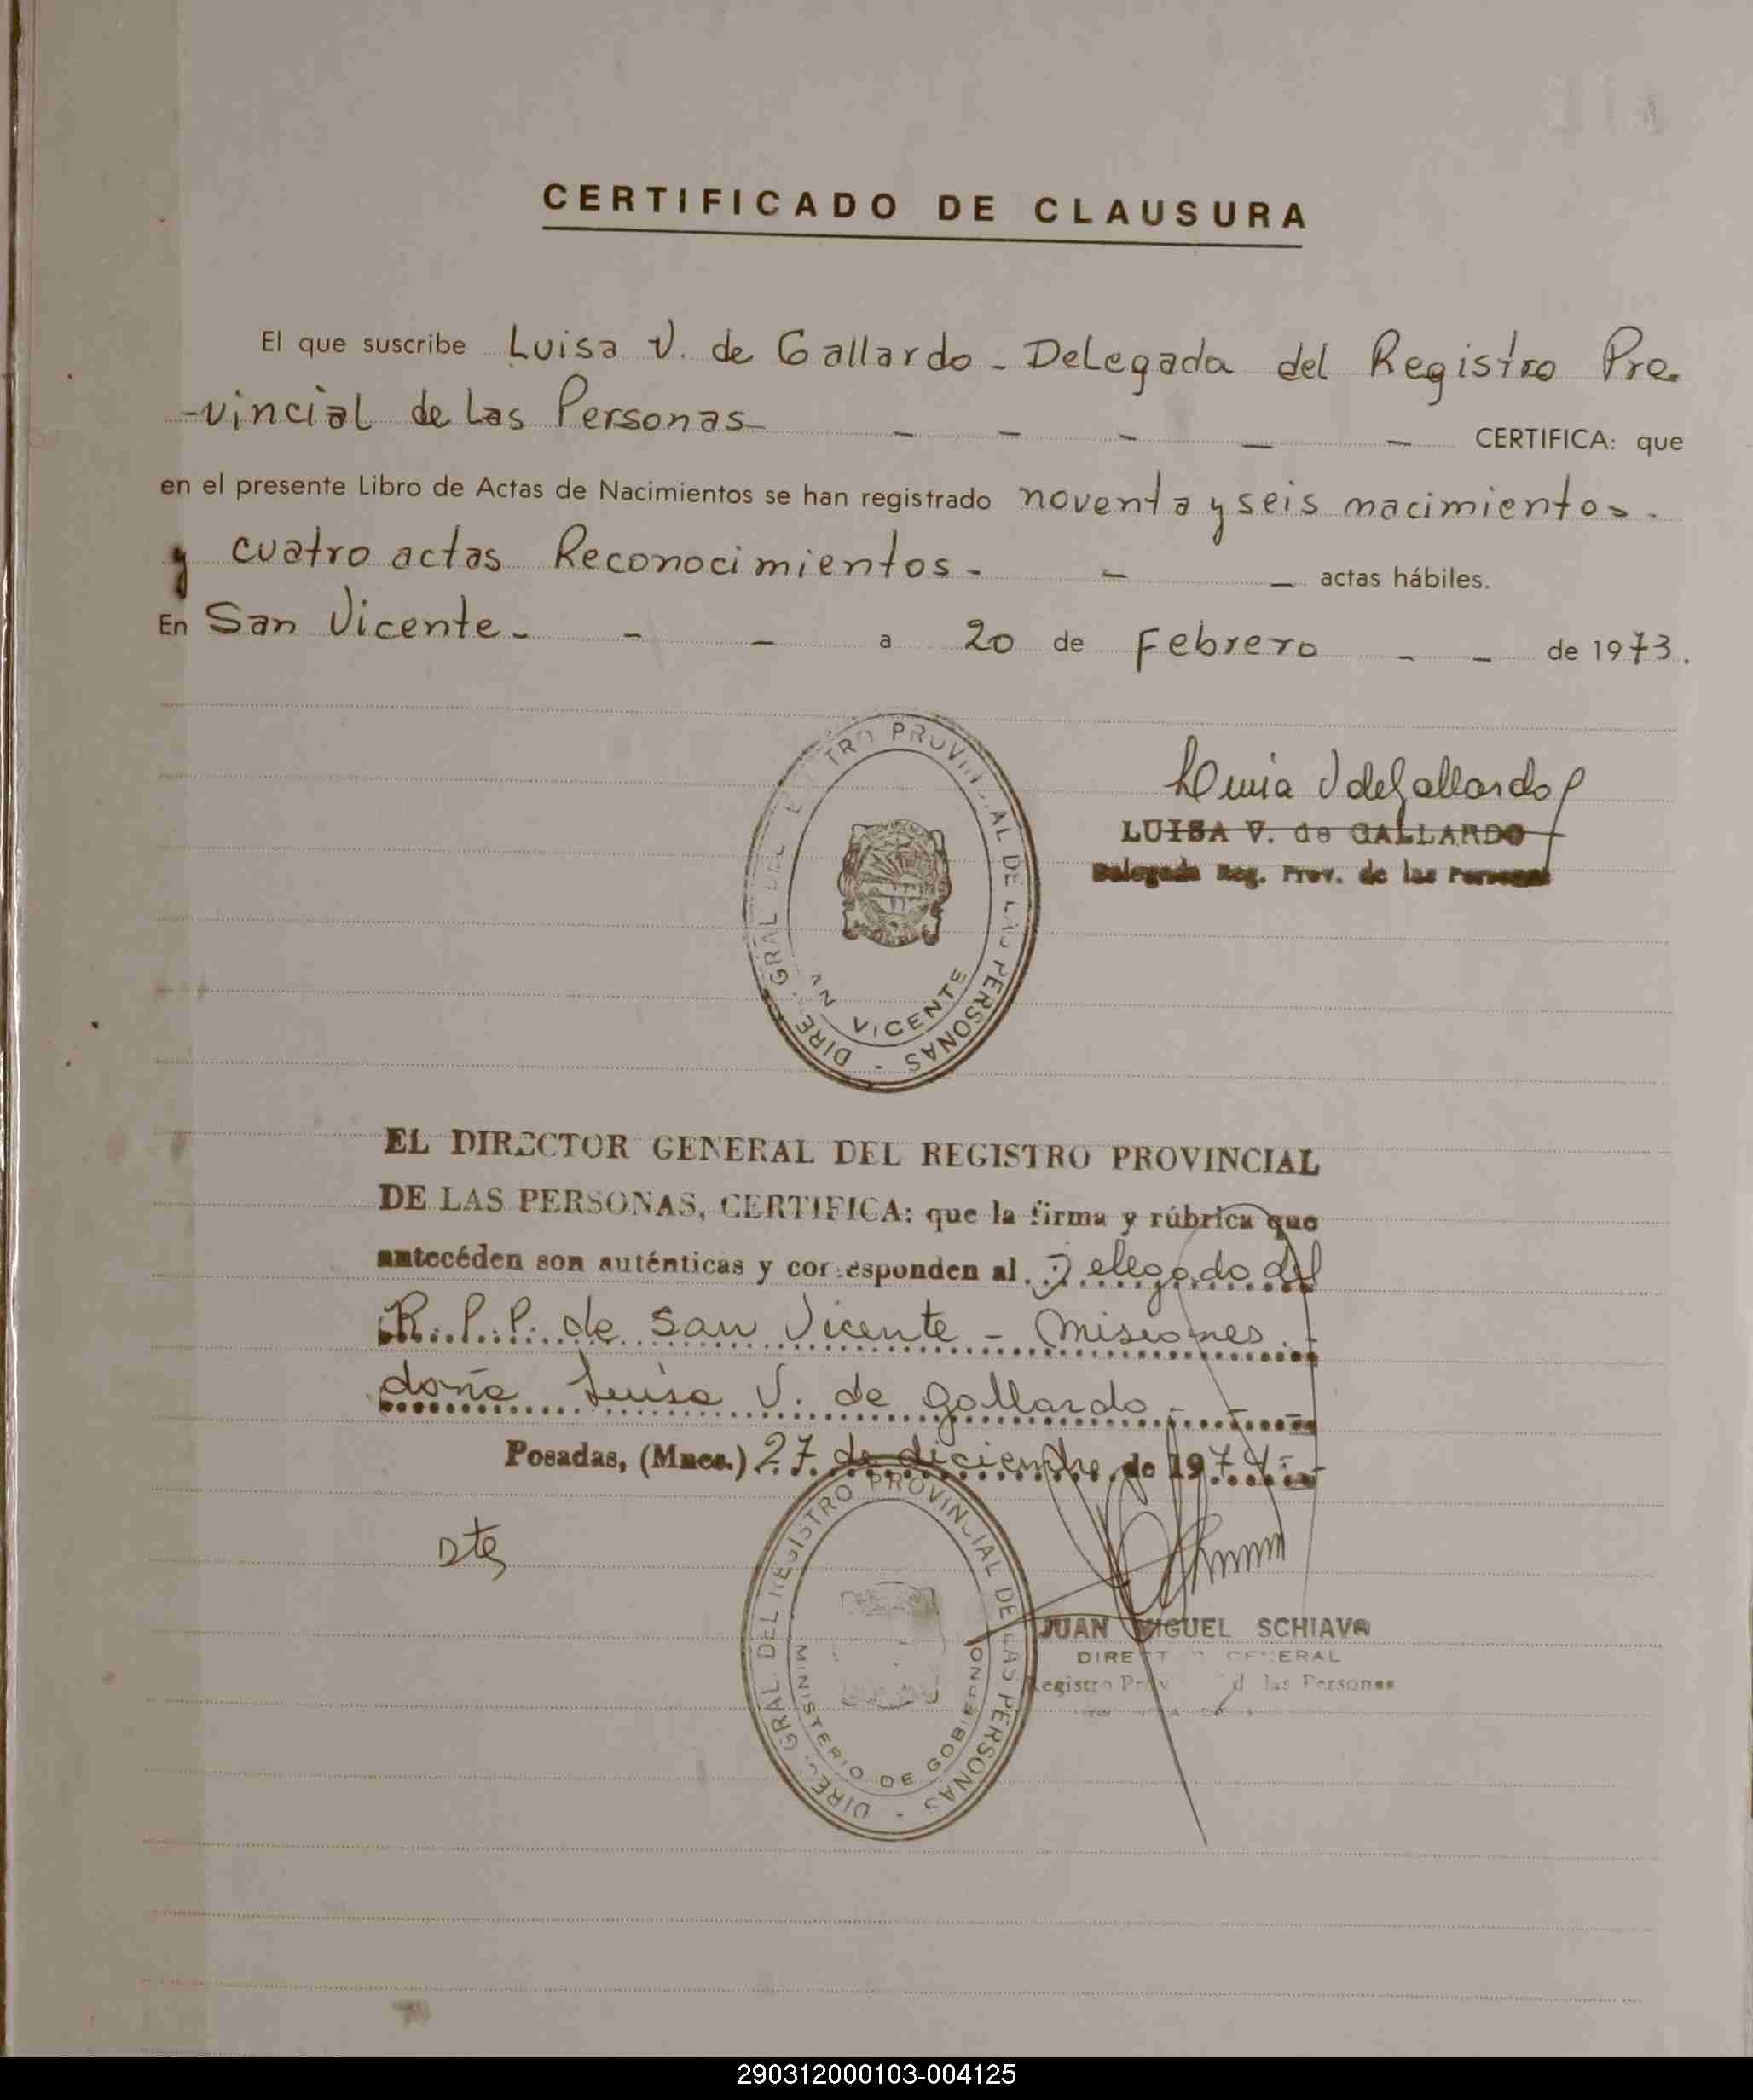 CERTIFICADO DE CLAUSURA
El que suscribe Luisa V. de Gallardo - Delegada del Registro Pro
-vincial de las Personas - - - - - CERTIFICA: que
en el presente Libro de Actas de Nacimientos se han registrado noventa y seis nacimientos -
y cuatro actas Reconocimientos - - - actas hábiles.
En San Vicente - - - a 20 de Febrero - - de 1973.
DIRE . GRAL DEL TRO PROVINCIAL DE LAS PERSONAS -
AN VICENTE
Luisa V de Gallardo
LUISA V. de GALLARDO
Delegada Reg. Prov. de las Personas
EL DIRECTOR GENERAL DEL REGISTRO PROVINCIAL
DE LAS PERSONAS, CERTIFICA: que la firma y rúbrica que
antecéden son auténticas y corresponden al Delegado del
R.P.P. de San Vicente - Misiones.-
doña Luisa V. de Gallardo.-
Posadas, (Mnes.) 27 de diciembre de 1974.-
DIRE . GRAL DEL REGISTRO PROVINCIAL DE LAS PERSONAS -
MINISTERIO DE GOBIERNO
JUAN MIGUEL SCHIAVO
DIRECTOR GENERAL
Registro Prov d las Personas
290312000103-004125